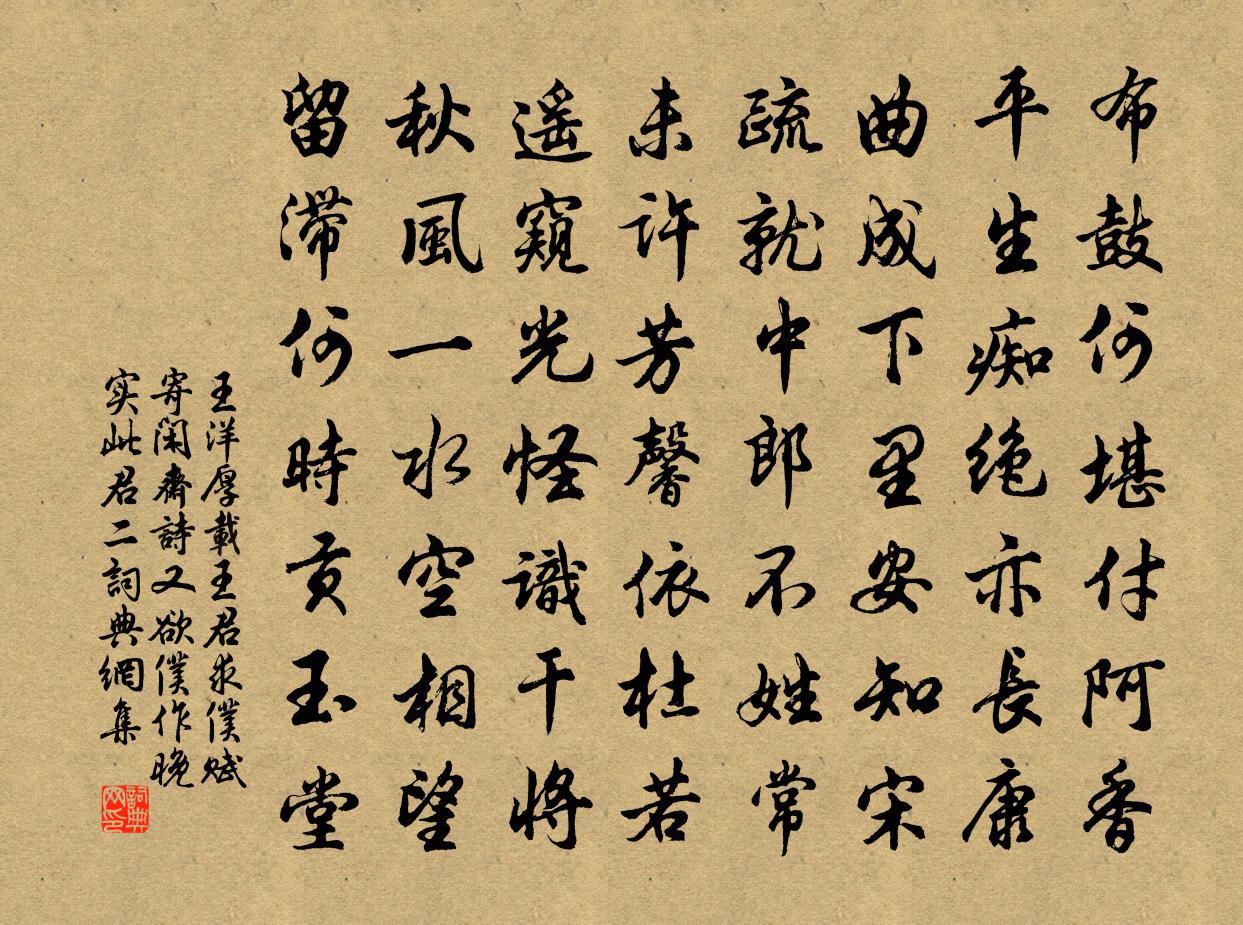 布鼓何堪付阿香
平生痴绝亦長康
曲成下里安知宋
疏就中郎不姓常
未许芳馨依杜若
遥窥光怪識干将
秋風一水空相望
留滞何時贡玉堂
王洋厚載王君求僕赋
寄閑齋詩又欲僕作晚
实此君二詞典網集
詞典网印